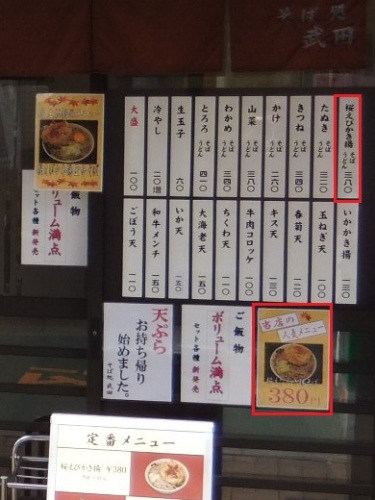 そば処
武田
桜えびかき揚 そば うどん 三八〇
たぬき そば うどん 三二〇
きつね そば うどん 三四〇
かけ そば うどん 二六〇
山菜 そば うどん 三四〇
わかめ そば うどん 三四〇
とろろ そば うどん 四一〇
生玉子 六〇
冷やし 二〇増
大盛 一〇〇
いかかき揚 一三〇
玉ねぎ天 一一〇
春菊天 一二〇
キス天 一三〇
牛肉コロッケ 一〇〇
ちくわ天 一一〇
大海老天 一五〇
いか天 一五〇
和牛メンチ 一五〇
ごぼう天 一一〇
ご飯物
ボリューム満点
セット各種 新発売
天ぷら
お持ち帰り
始めました。
そば処 武田
ご飯物
ボリューム満点
セット各種 新発売
当店の
人気メニュー
380円
定番メニュー
桜えびかき揚 ¥380